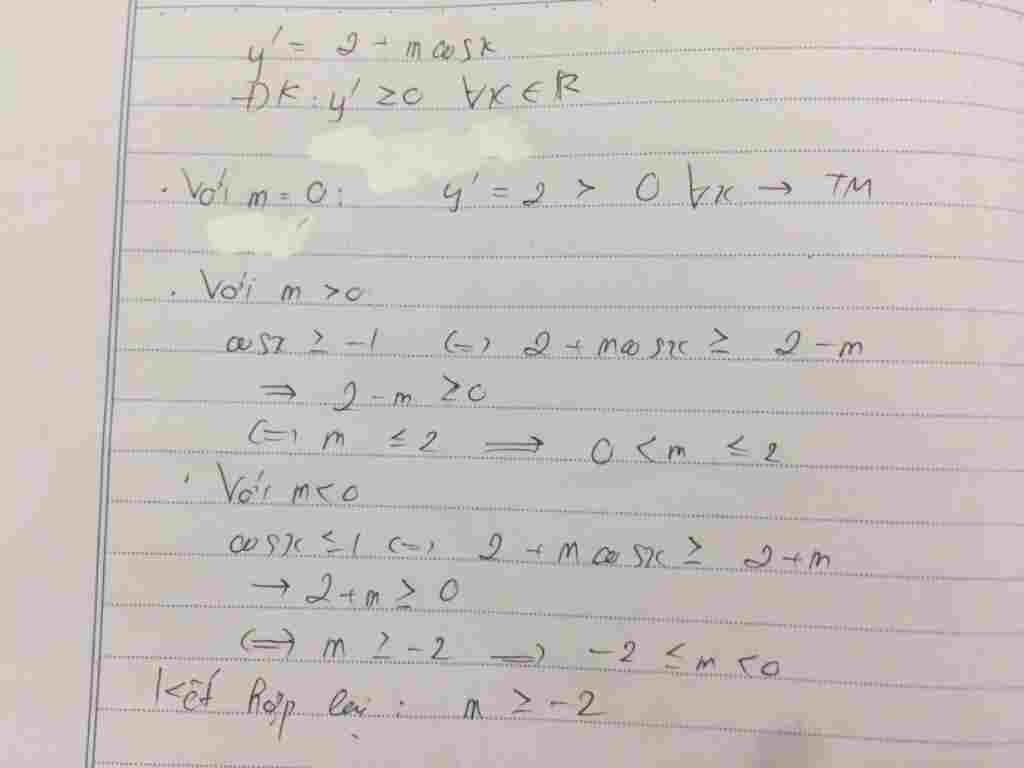 y' = 2 + m cosx
ĐK: y' ≥ 0 ∀x ∈ R
. Với m = 0: y' = 2 > 0 ∀x → TM
. Với m > 0
cosx ≥ -1 (=) 2 + m cosx ≥ 2 - m
⇒ 2 - m ≥ 0
(=) m ≤ 2 ⟹ 0 < m ≤ 2
. Với m < 0
cosx ≤ 1 (=) 2 + m cosx ≥ 2 + m
→ 2 + m ≥ 0
(=) m ≥ -2 ⟹ -2 ≤ m < 0
Kết hợp lại: m ≥ -2